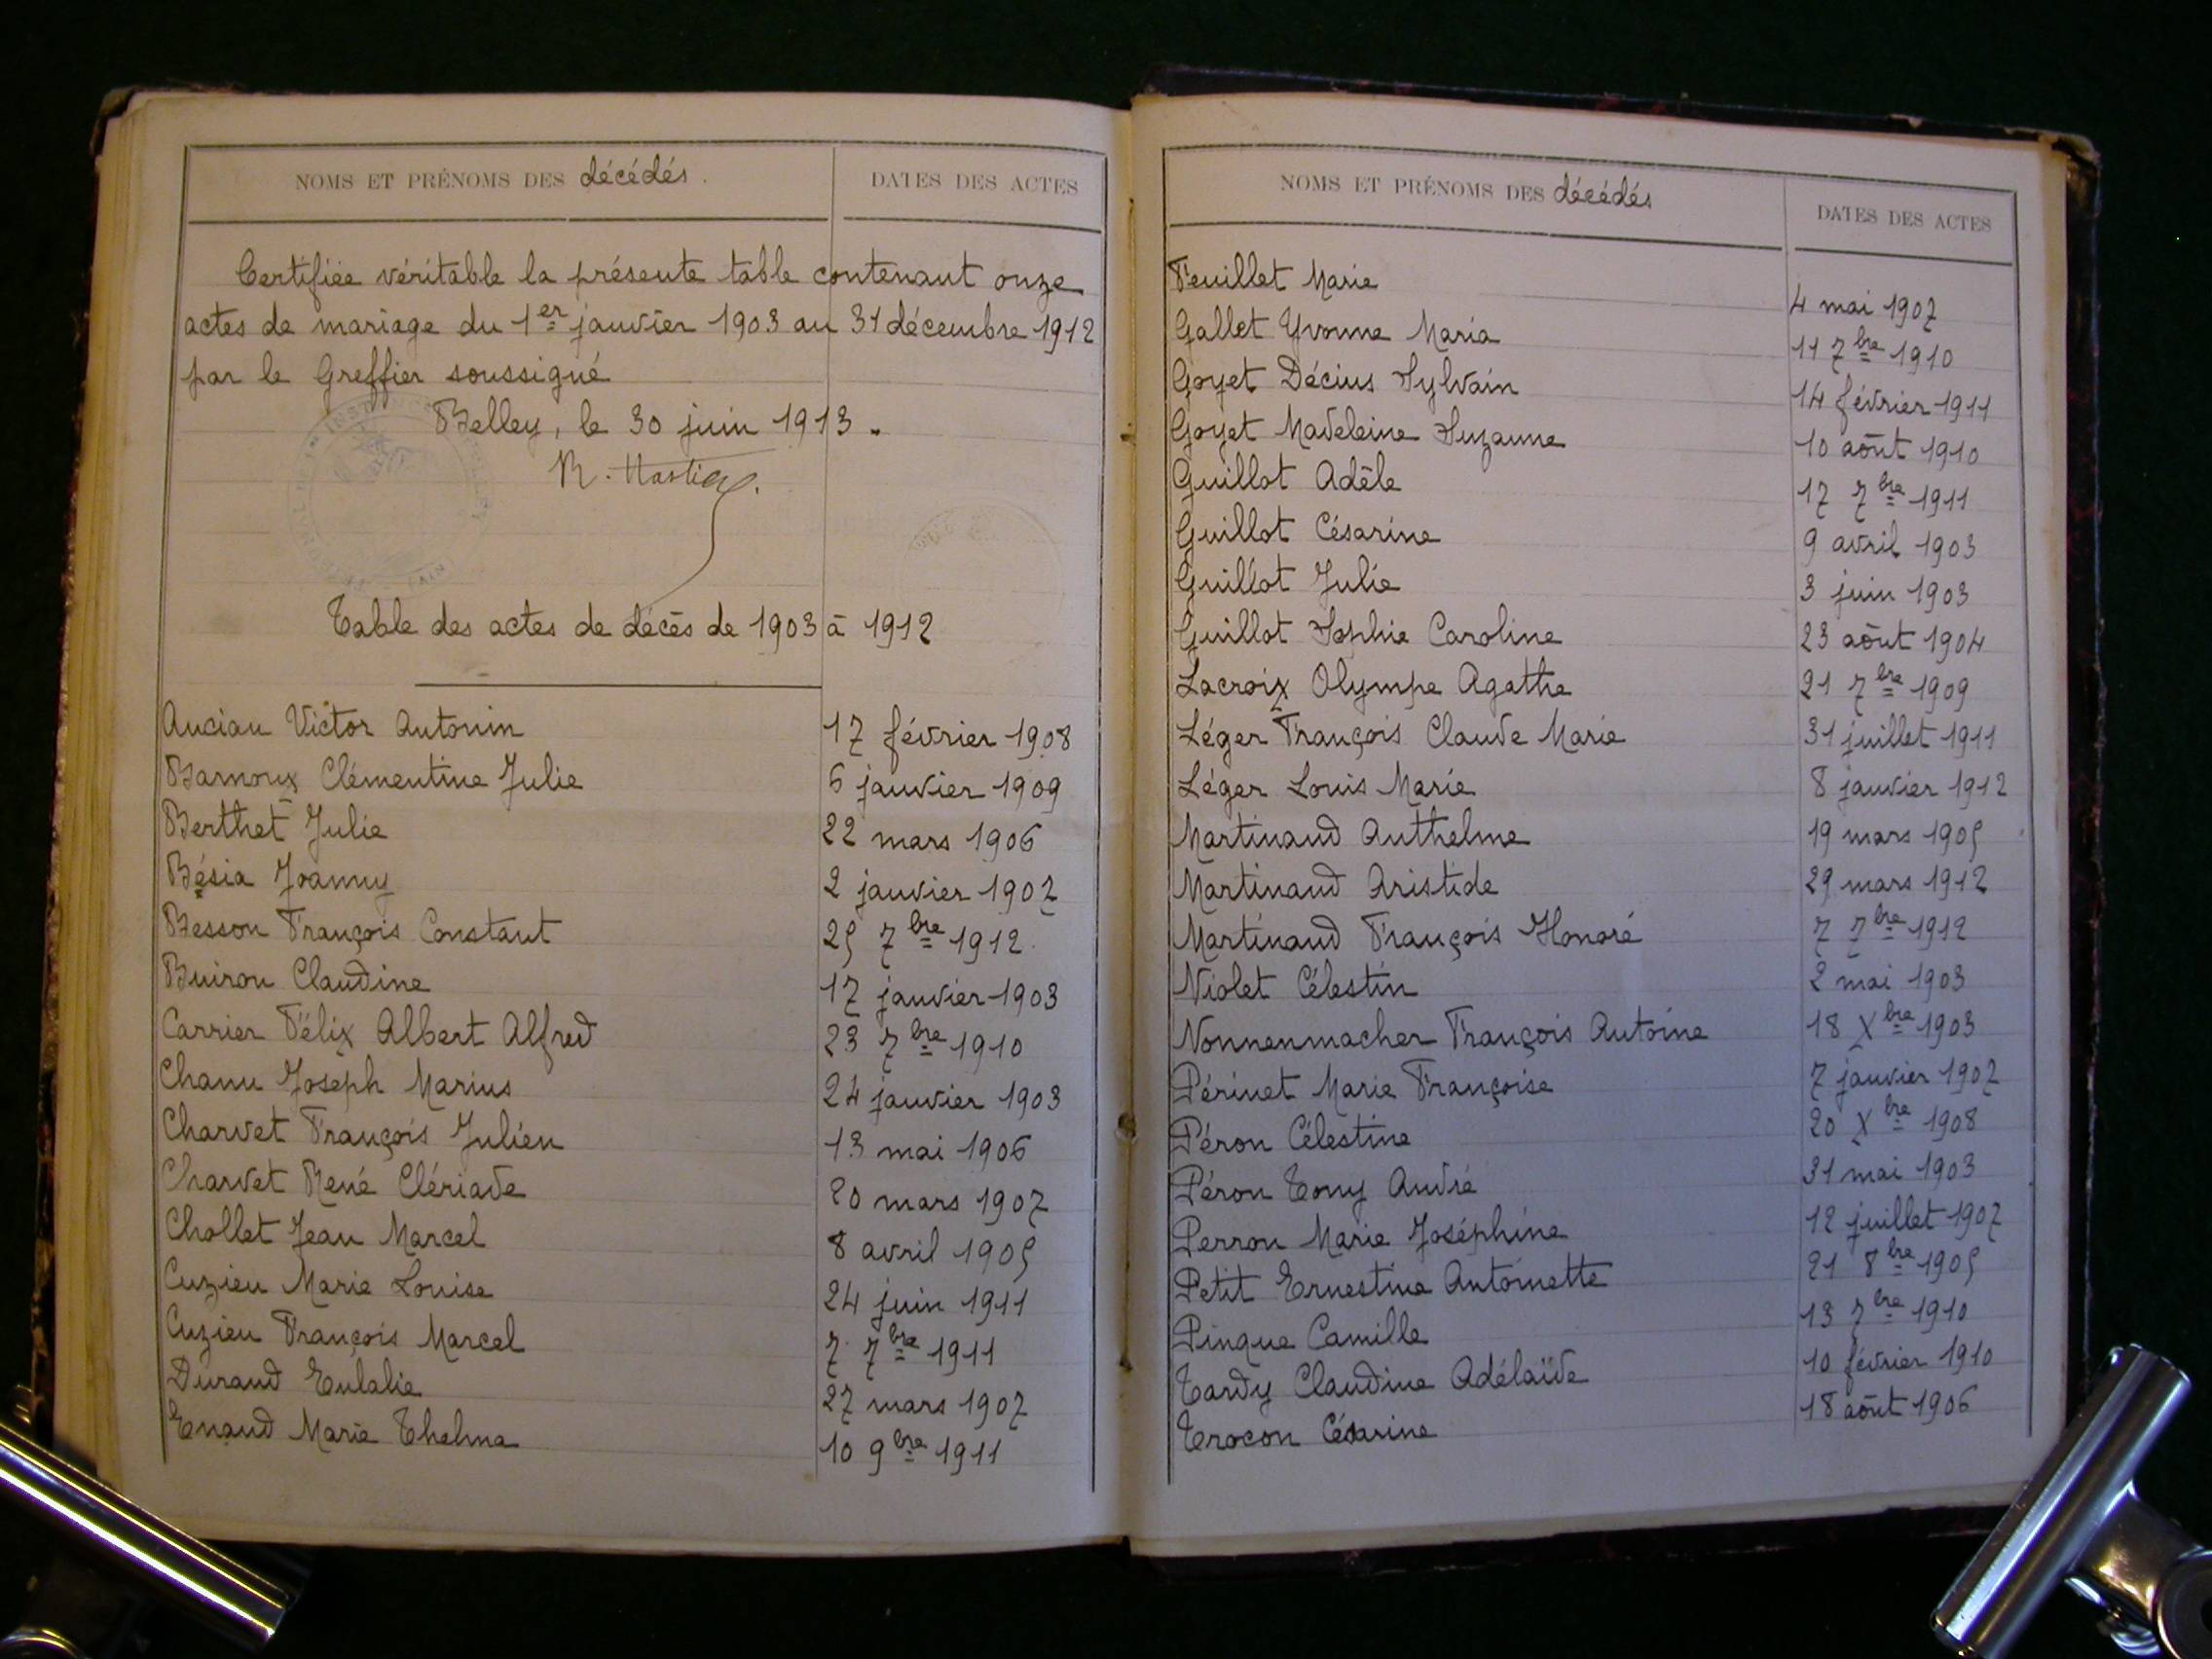 NOMS ET PRÉNOMS DES décédés. DATES DES ACTES
Certifiée véritable la présente table contenant onze
actes de mariage du 1er janvier 1903 au 31 décembre 1912
par le Greffier soussigné
Belley, le 30 juin 1913.
Table des actes de décès de 1903 à 1912
Anciau Victor Antonin 17 février 1908
Barnoux Clémentine Julie 6 janvier 1909
Berthet Julie 22 mars 1906
Bésia Joanny 2 janvier 1907
Besson François Constant 25 7bre 1912
Buiron Claudine 17 janvier 1903
Carrier Félix Albert Alfred 23 7bre 1910
Chanu Joseph Marius 24 janvier 1903
Charvet François Julien 13 mai 1906
Charvet René Clériade 20 mars 1907
Chollet Jean Marcel 8 avril 1905
Cuzieu Marie Louise 24 juin 1911
Cuzieu François Marcel 7 7bre 1911
Durand Eulalie 27 mars 1907
Enaud Marie Thelma 10 9bre 1911
NOMS ET PRÉNOMS DES décédés DATES DES ACTES
Feuillet Marie 4 mai 1907
Gallet Yvonne Maria 11 7bre 1910
Goyet Décius Sylvain 14 février 1911
Goyet Madeleine Suzanne 10 août 1910
Guillot Adèle 17 7bre 1911
Guillot Césarine 9 avril 1903
Guillot Julie 3 juin 1903
Guillot Sophie Caroline 23 août 1904
Lacroix Olympe Agathe 21 7bre 1909
Léger François Claude Marie 31 juillet 1911
Léger Louis Marie 8 janvier 1912
Martinaud Anthelme 19 mars 1905
Martinaud Aristide 29 mars 1912
Martinaud François Honoré 7 7bre 1912
Niolet Célestin 2 mai 1903
Nonnenmacher François Antoine 18 Xbre 1903
Périnet Marie Françoise 7 janvier 1907
Péron Célestine 20 Xbre 1908
Péron Tony André 31 mai 1903
Perron Marie Joséphine 12 juillet 1907
Petit Ernestine Antoinette 21 8bre 1905
Pinque Camille 13 7bre 1910
Tardy Claudine Adélaïde 10 février 1910
Trocon Césarine 18 août 1906